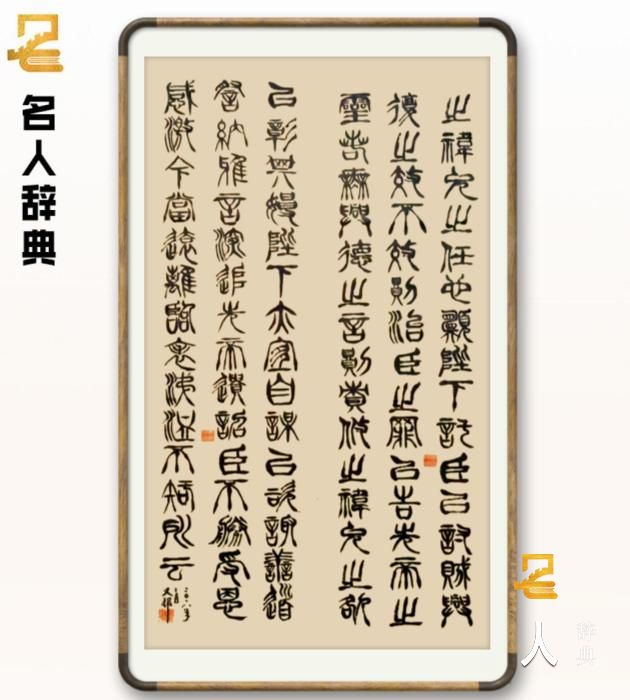 名人辞典
之禕允之任也願陛下託臣以討賊興
復之效不效則治臣之罪以告先帝之
靈若無興德之言則責攸之禕允之
以彰其慢陛下亦宜自謀以諮諏善道
察納雅言深追先帝遺詔臣不勝受恩
感激今當遠離臨表涕泣不知所云
人
辞典